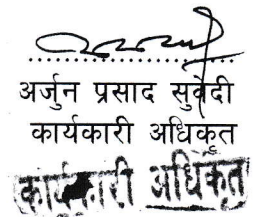 अर्जुन प्रसाद सुवेदी
कार्यकारी अधिकृत
कार्यकारी अधिकृत